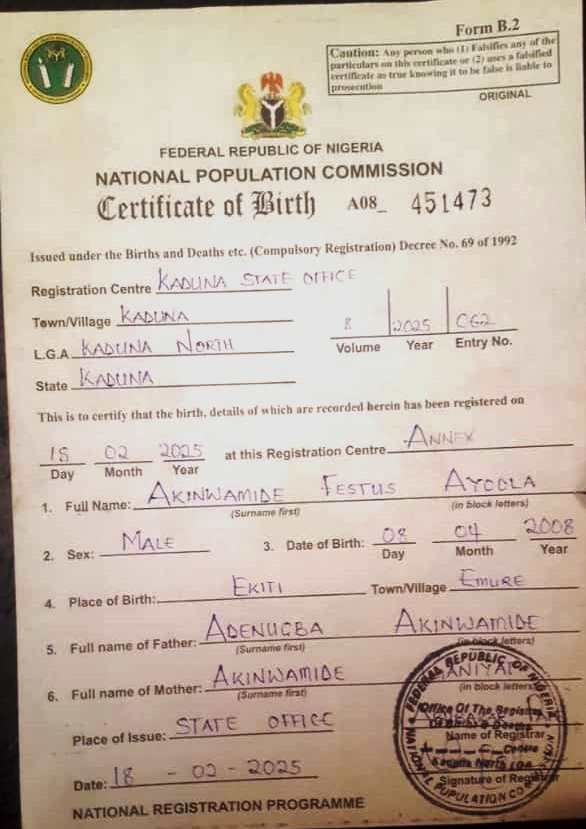 Form B.2
Caution: Any person who (1) Falsifies any of the
particulars on this certificate or (2) uses a falsified
certificate as true knowing it to be false is liable to
prosecution
ORIGINAL
FEDERAL REPUBLIC OF NIGERIA
NATIONAL POPULATION COMMISSION
Certificate of Birth A08_ 451473
Issued under the Births and Deaths etc. (Compulsory Registration) Decree No. 69 of 1992
Registration Centre KADUNA STATE OFFICE
Town/Village KADUNA
L.G.A KADUNA NORTH
State KADUNA
8 2025
Volume Year Entry No.
This is to certify that the birth, details of which are recorded herein has been registered on
18 02 2025 at this Registration Centre ANNEX
Day Month Year
1. Full Name: AKINWAMIDE FESTUS AYOOLA
(Surname first) (in block letters)
2. Sex: MALE 3. Date of Birth: 08 04 2008
Day Month Year
4. Place of Birth: EKITI Town/Village EMURE
5. Full name of Father: ADENUGBA AKINWAMIDE
(Surname first) (in block letters)
6. Full name of Mother: AKINWAMIDE
(Surname first) (in block letters)
Place of Issue: STATE OFFICE
Name of Registrar
Date: 18 - 02 - 2025
Signature of Registrar
NATIONAL REGISTRATION PROGRAMME
FEDERAL REPUBLIC OF NIGERIA
Office Of The Registrar
Kaduna North LGA
NATIONAL POPULATION